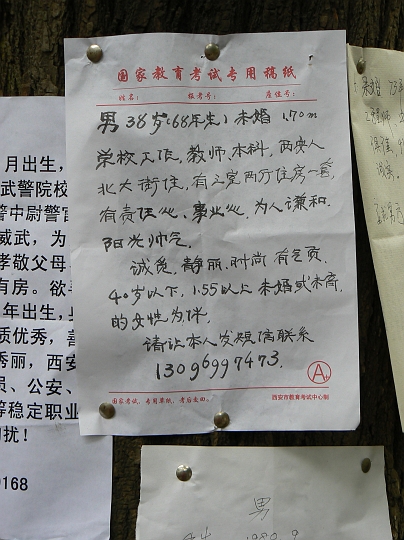 国家教育考试专用稿纸
姓名: 报考号: 座位号:
男 38岁(68年生)未婚 1.70m
学校工作,教师,本科,西安人
北大街住,有三室两厅住房一套,
有责任心、事业心,为人谦和,
阳光帅气.
诚觅,静丽,时尚,有气质,
40岁以下,1.55以上未婚或未育
的女性为伴.
请让本人发短信联系
13096997473.
A
国家考试,专用草纸,考后收回. 西安市教育考试中心制
月出生,
武警院校
警中尉警官
威武,为
孝敬父母
有房。欲
年出生,
质优秀,善
秀丽,西安
员、公安、
等稳定职业
勿扰!
0168
男